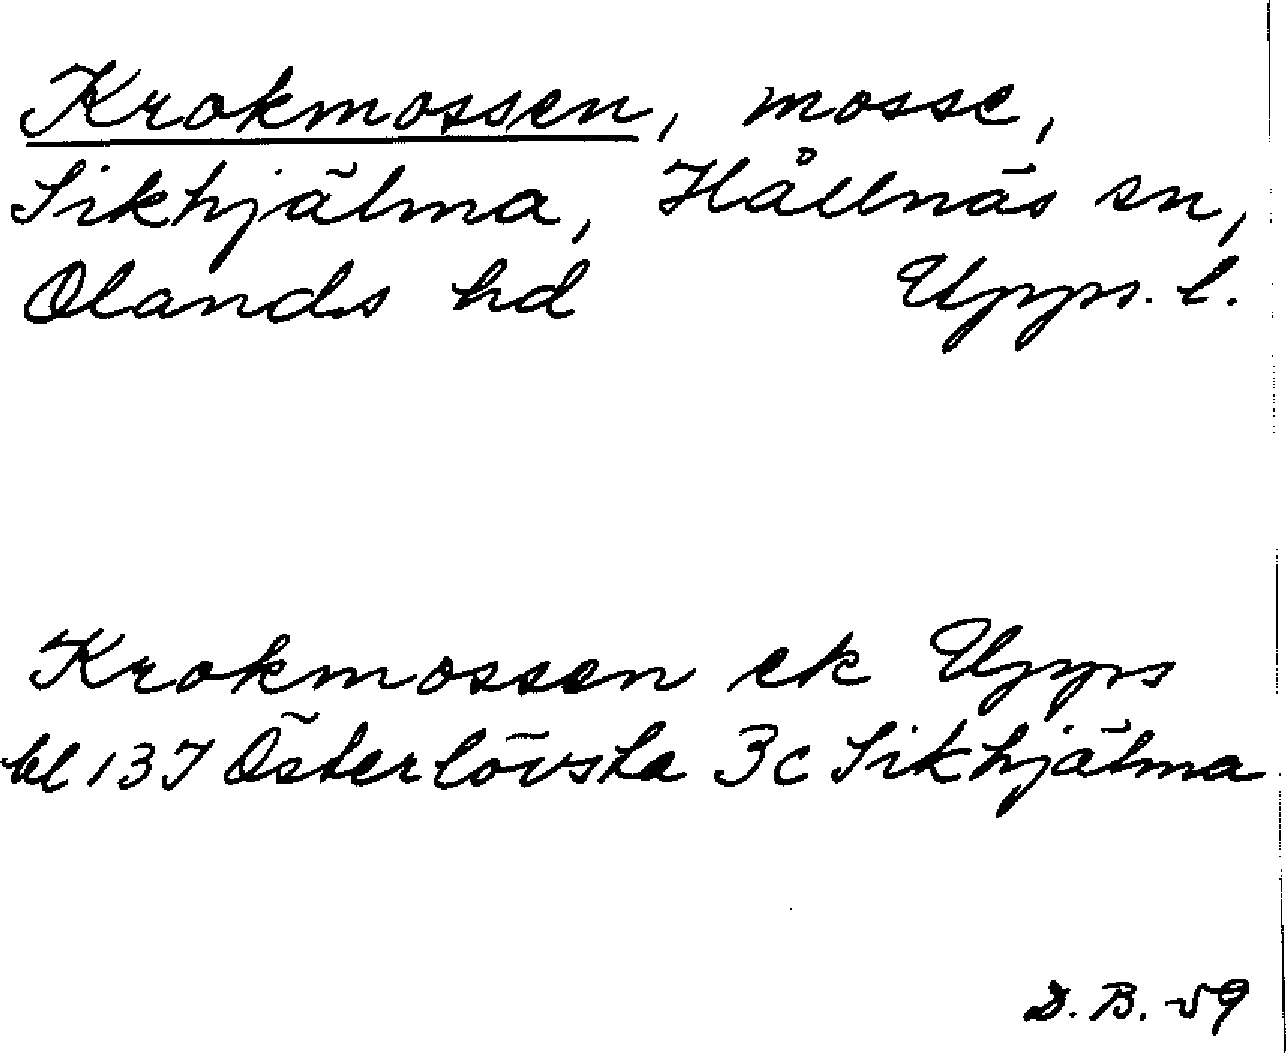 Krokmossen, mosse,
Sikhjälma, Hållnäs sn,
Olands hd Upps. l.
Krokmossen ek Upps
bl 137 Österlövsta 3c Sikhjälma
D. B. -59